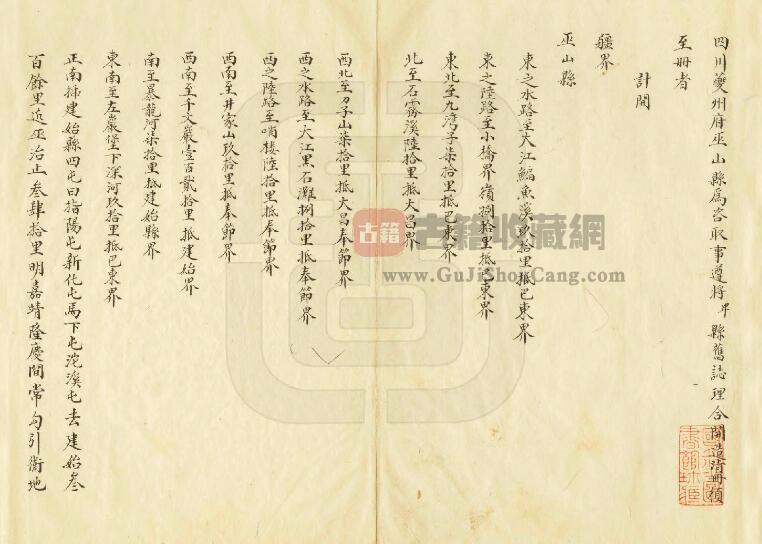 四川夔州府巫山縣爲咨取事遵將卑縣舊誌理合開造清冊須
至冊者
計開
疆界
巫山縣
東之水路至大江鯿魚溪玖拾里抵巴東界
東之陸路至小橋界嶺捌拾里抵巴東界
東北至九灣子柒拾里抵巴東界
北至石霧溪陸拾里抵大昌界
西北至刀子山柒拾里抵大昌奉節界
西之水路至大江黑石灘捌拾里抵奉節界
西之陸路至哨樓陸拾里抵奉節界
西南至井家山玖拾里抵奉節界
西南至千丈巖壹百貳拾里抵建始界
南至暴龍河柒拾里抵建始縣界
東南至左巖堡下深河玖拾里抵巴東界
正南插建始縣四屯曰指陽屯新化屯馬下屯沱溪屯去建始叁
百餘里近巫治止叁肆拾里明嘉靖隆慶間常勾引衛地
古籍 古籍收藏網
www.GuJiShouCang.com